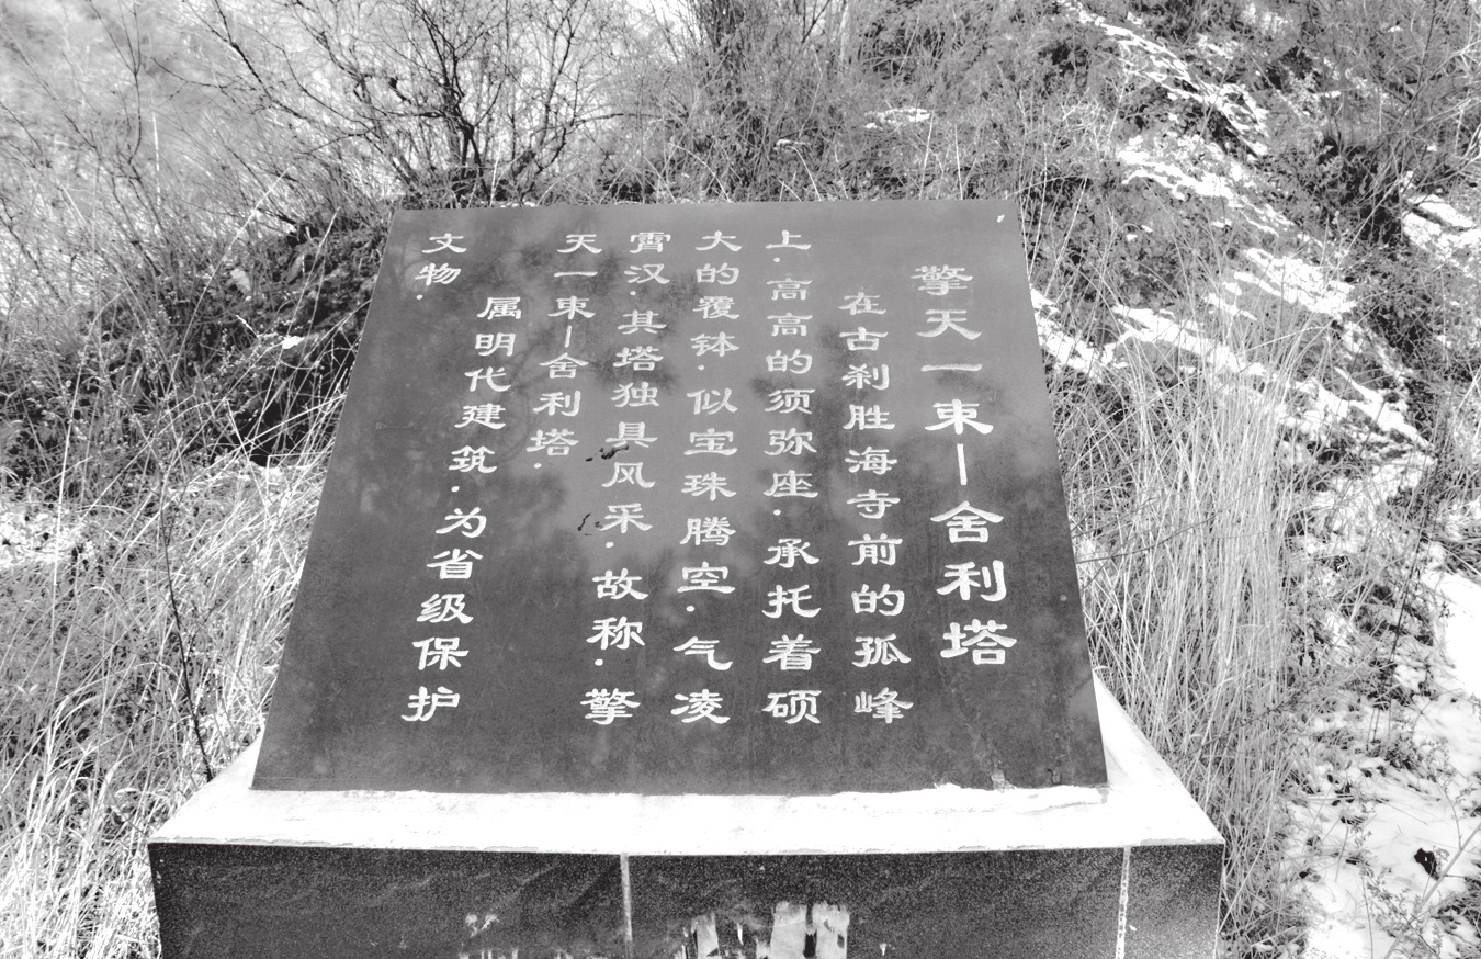 擎天一束—舍利塔
在古刹胜海寺前的孤峰
上.高高的须弥座.承托着硕
大的覆钵.似宝珠腾空.气凌
霄汉.其塔独具风采.故称.擎
天一束—舍利塔.
属明代建筑.为省级保护
文物.